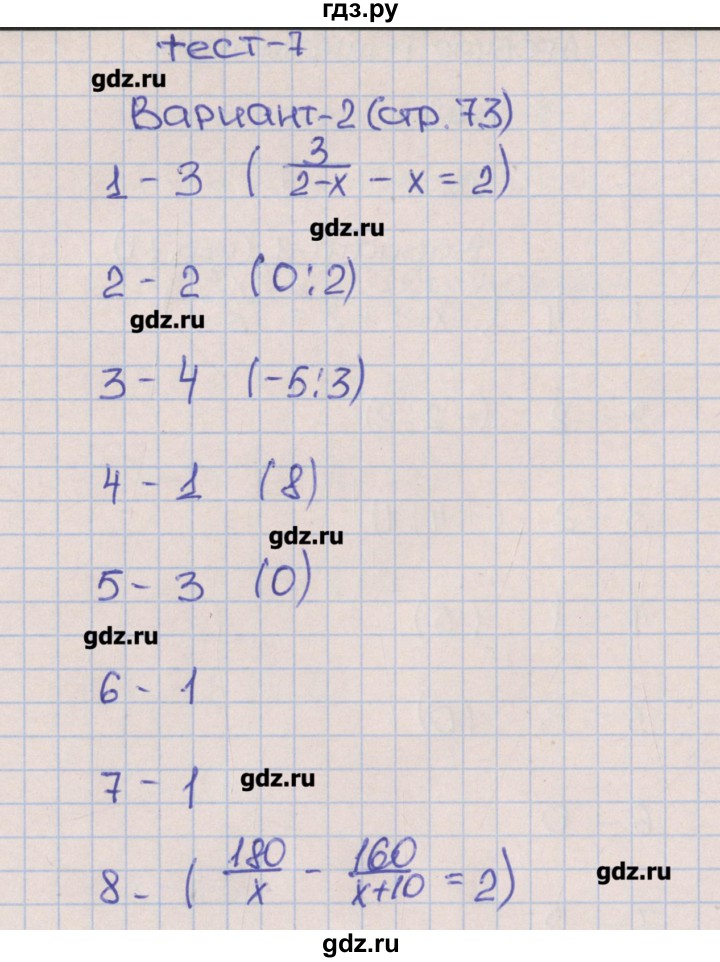 гдз.ру
тест-7
gdz.ru
Вариант-2 (стр. 73)
1 - 3 ( 3/(2-x) - x = 2)
gdz.ru
2 - 2 (0; 2)
gdz.ru
3 - 4 (-5; 3)
4 - 1 (8)
gdz.ru
5 - 3 (0)
gdz.ru
6 - 1
7 - 1 gdz.ru
8 - ( 180/x - 160/(x+10) = 2)
gdz.ru
gdz.ru